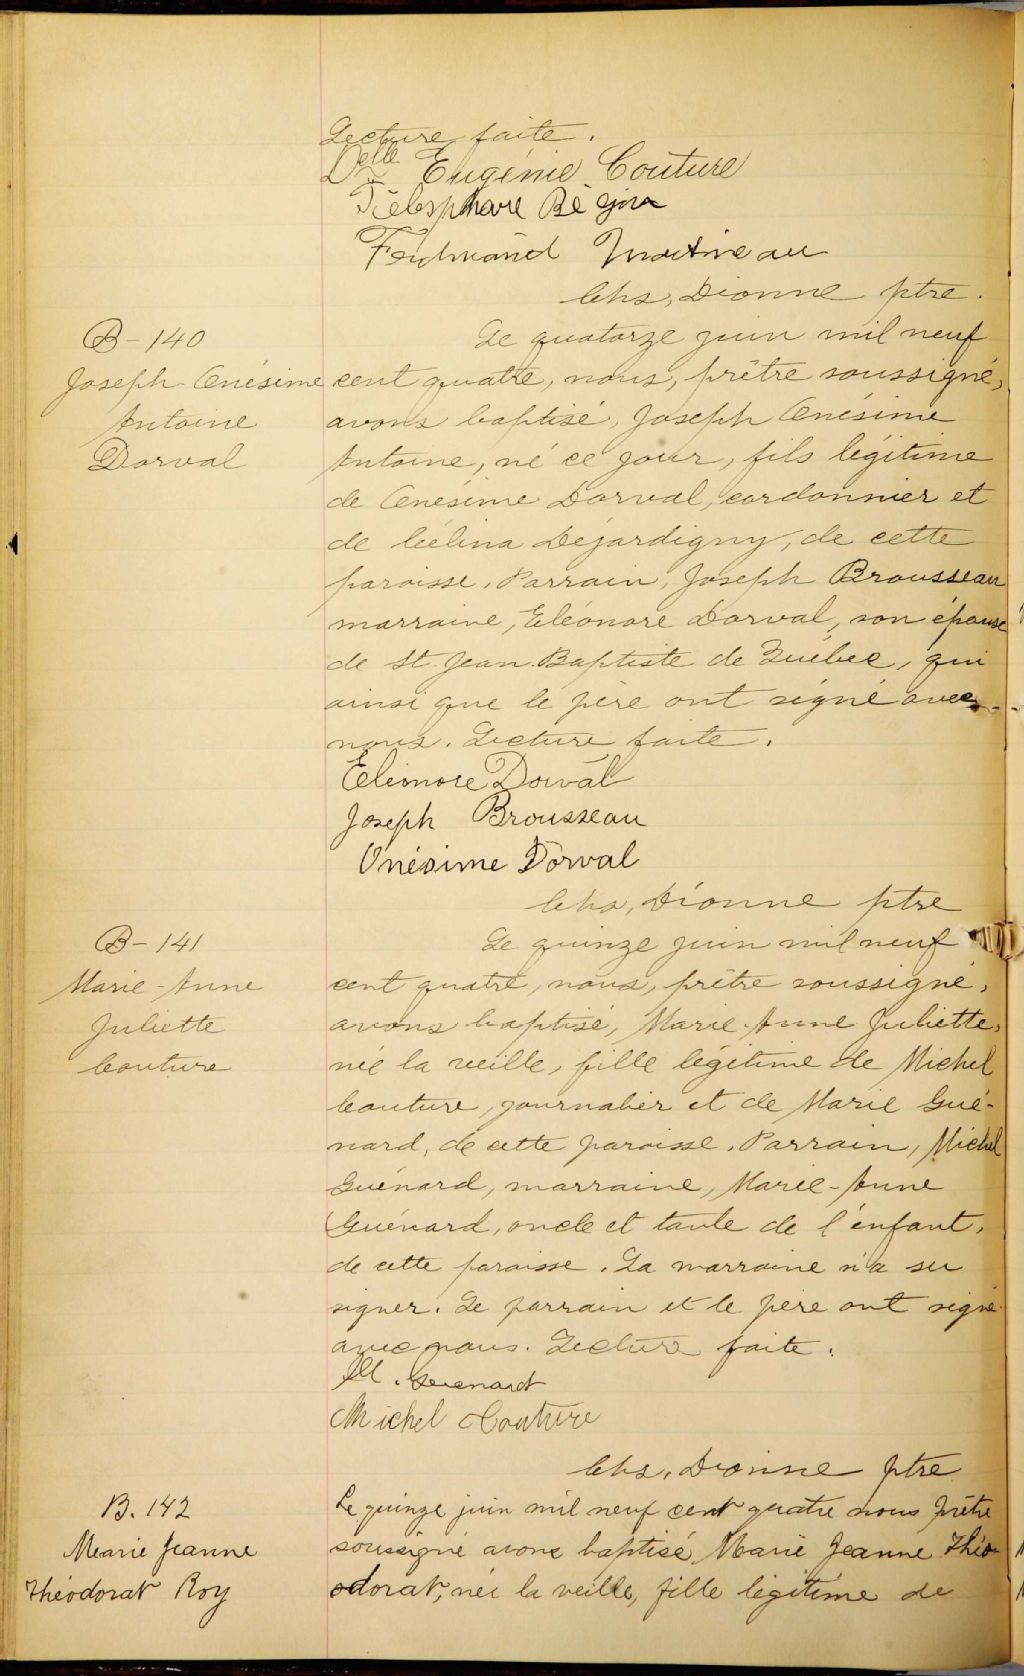 Lecture faite.
Delle Eugénie Couture
Télesphore Bégin
Ferdinand Martineau
Chs, Dionne ptre.
B-140
Joseph Onésime
Antoine
Dorval
Le quatorze juin mil neuf
cent quatre, nous, prêtre soussigné,
avons baptisé, Joseph Onésime
Antoine, né ce jour, fils légitime
de Onésime Dorval, cordonnier et
de Célina Déjardigny, de cette
paroisse. Parrain, Joseph Brousseau
marraine, Eléonore Dorval, son épouse
de St. Jean Baptiste de Québec, qui
ainsi que le père ont signé avec
nous. Lecture faite.
Eléonore Dorval
Joseph Brousseau
Onésime Dorval
Chs, Dionne ptre
B-141
Marie-Anne
Juliette
Couture
Le quinze juin mil neuf
cent quatre, nous, prêtre soussigné,
avons baptisé, Marie-Anne Juliette,
née la veille, fille légitime de Michel
Couture, journalier et de Marie Gué-
nard, de cette paroisse. Parrain, Michel
Guénard, marraine, Marie-Anne
Guénard, oncle et tante de l'enfant,
de cette paroisse. La marraine n'a su
signer. Le parrain et le père ont signé
avec nous. Lecture faite.
M. Guenard
Michel Couture
Chs, Dionne ptre
B. 142
Marie Jeanne
Théodorat Roy
Le quinze juin mil neuf cent quatre nous prêtre
soussigné avons baptisé Marie Jeanne Théo-
odorat, née la veille, fille légitime de